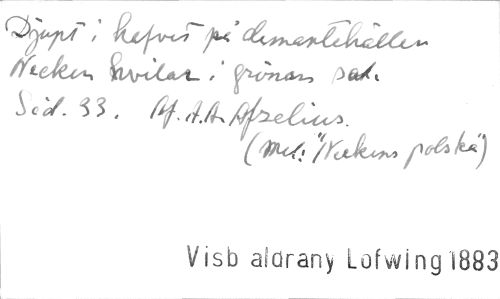 Djupt i hafvet på demantehällen
Necken hvilar i grönan sal.
Sid. 33. Af. A.A. Afzelius.
(Mel: "Neckens polska")
Visb aldrany Lofwing 1883